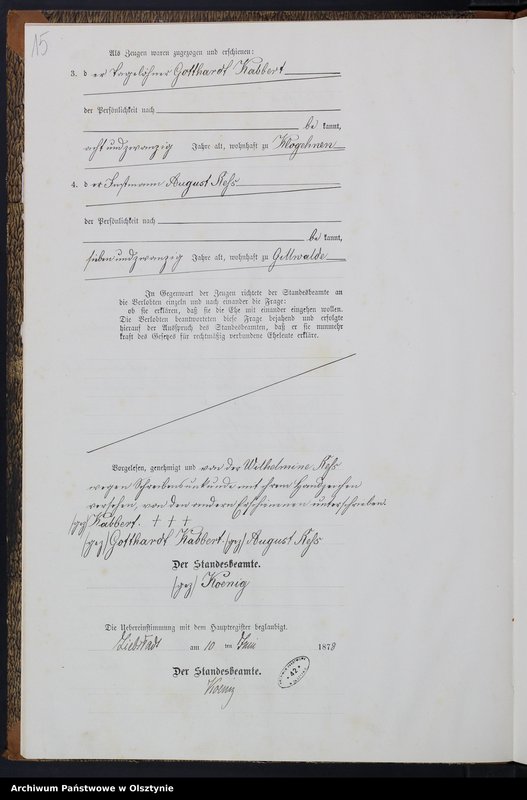 15
Als Zeugen waren zugezogen und erschienen:
3. der Tagelöhner Gotthardt Kabbert
der Persönlichkeit nach
bekannt,
acht und zwanzig Jahre alt, wohnhaft zu Klogehnen
4. der Instmann August Kehs
der Persönlichkeit nach
bekannt,
sieben und zwanzig Jahre alt, wohnhaft zu Gillwalde
In Gegenwart der Zeugen richtete der Standesbeamte an
die Verlobten einzeln und nach einander die Frage:
ob sie erklären, daß sie die Ehe mit einander eingehen wollen.
Die Verlobten beantworteten diese Frage bejahend und erfolgte
hierauf der Ausspruch des Standesbeamten, daß er sie nunmehr
kraft des Gesetzes für rechtmäßig verbundene Eheleute erkläre.
Vorgelesen, genehmigt und von der Wilhelmine Kehs
wegen Schreibensunkunde mit ihrem Handzeichen
versehen, von den andern Erschienenen unterschrieben.
(gez) Kabbert. + + +
(gez) Gotthardt Kabbert (gez) August Kehs
Der Standesbeamte.
(gez) Koenig
Die Uebereinstimmung mit dem Hauptregister beglaubigt.
Liebstadt am 10 ten Juni 1879
Der Standesbeamte.
Koenig
42
Archiwum Państwowe w Olsztynie